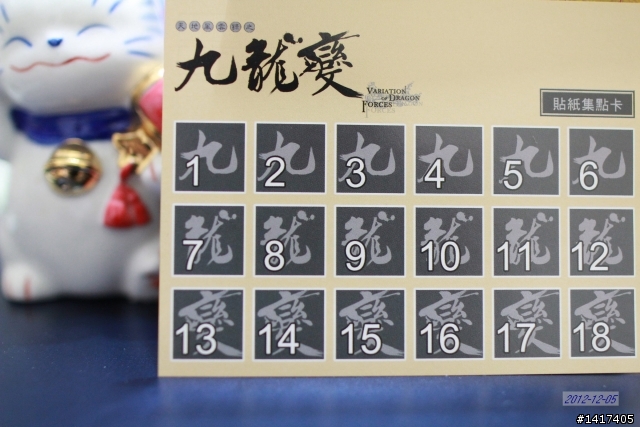 九龍變
VARIATION
OF DRAGON
FORCES
貼紙集點卡
九 1 九 2 九 3 九 4 九 5 九 6
龍 7 龍 8 龍 9 龍 10 龍 11 龍 12
變 13 變 14 變 15 變 16 變 17 變 18
2012-12-05
#1417405